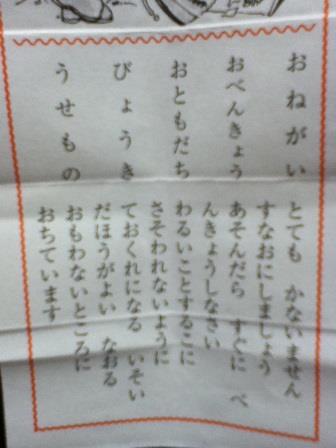 おねがい とても かないません
すなおにしましょう
おべんきょう あそんだら すぐに べ
んきょうしなさい
おともだち わるいことするこに
さそわれないように
びょうき ておくれになる いそい
だほうがよい なおる
うせもの おもわないところに
おちています